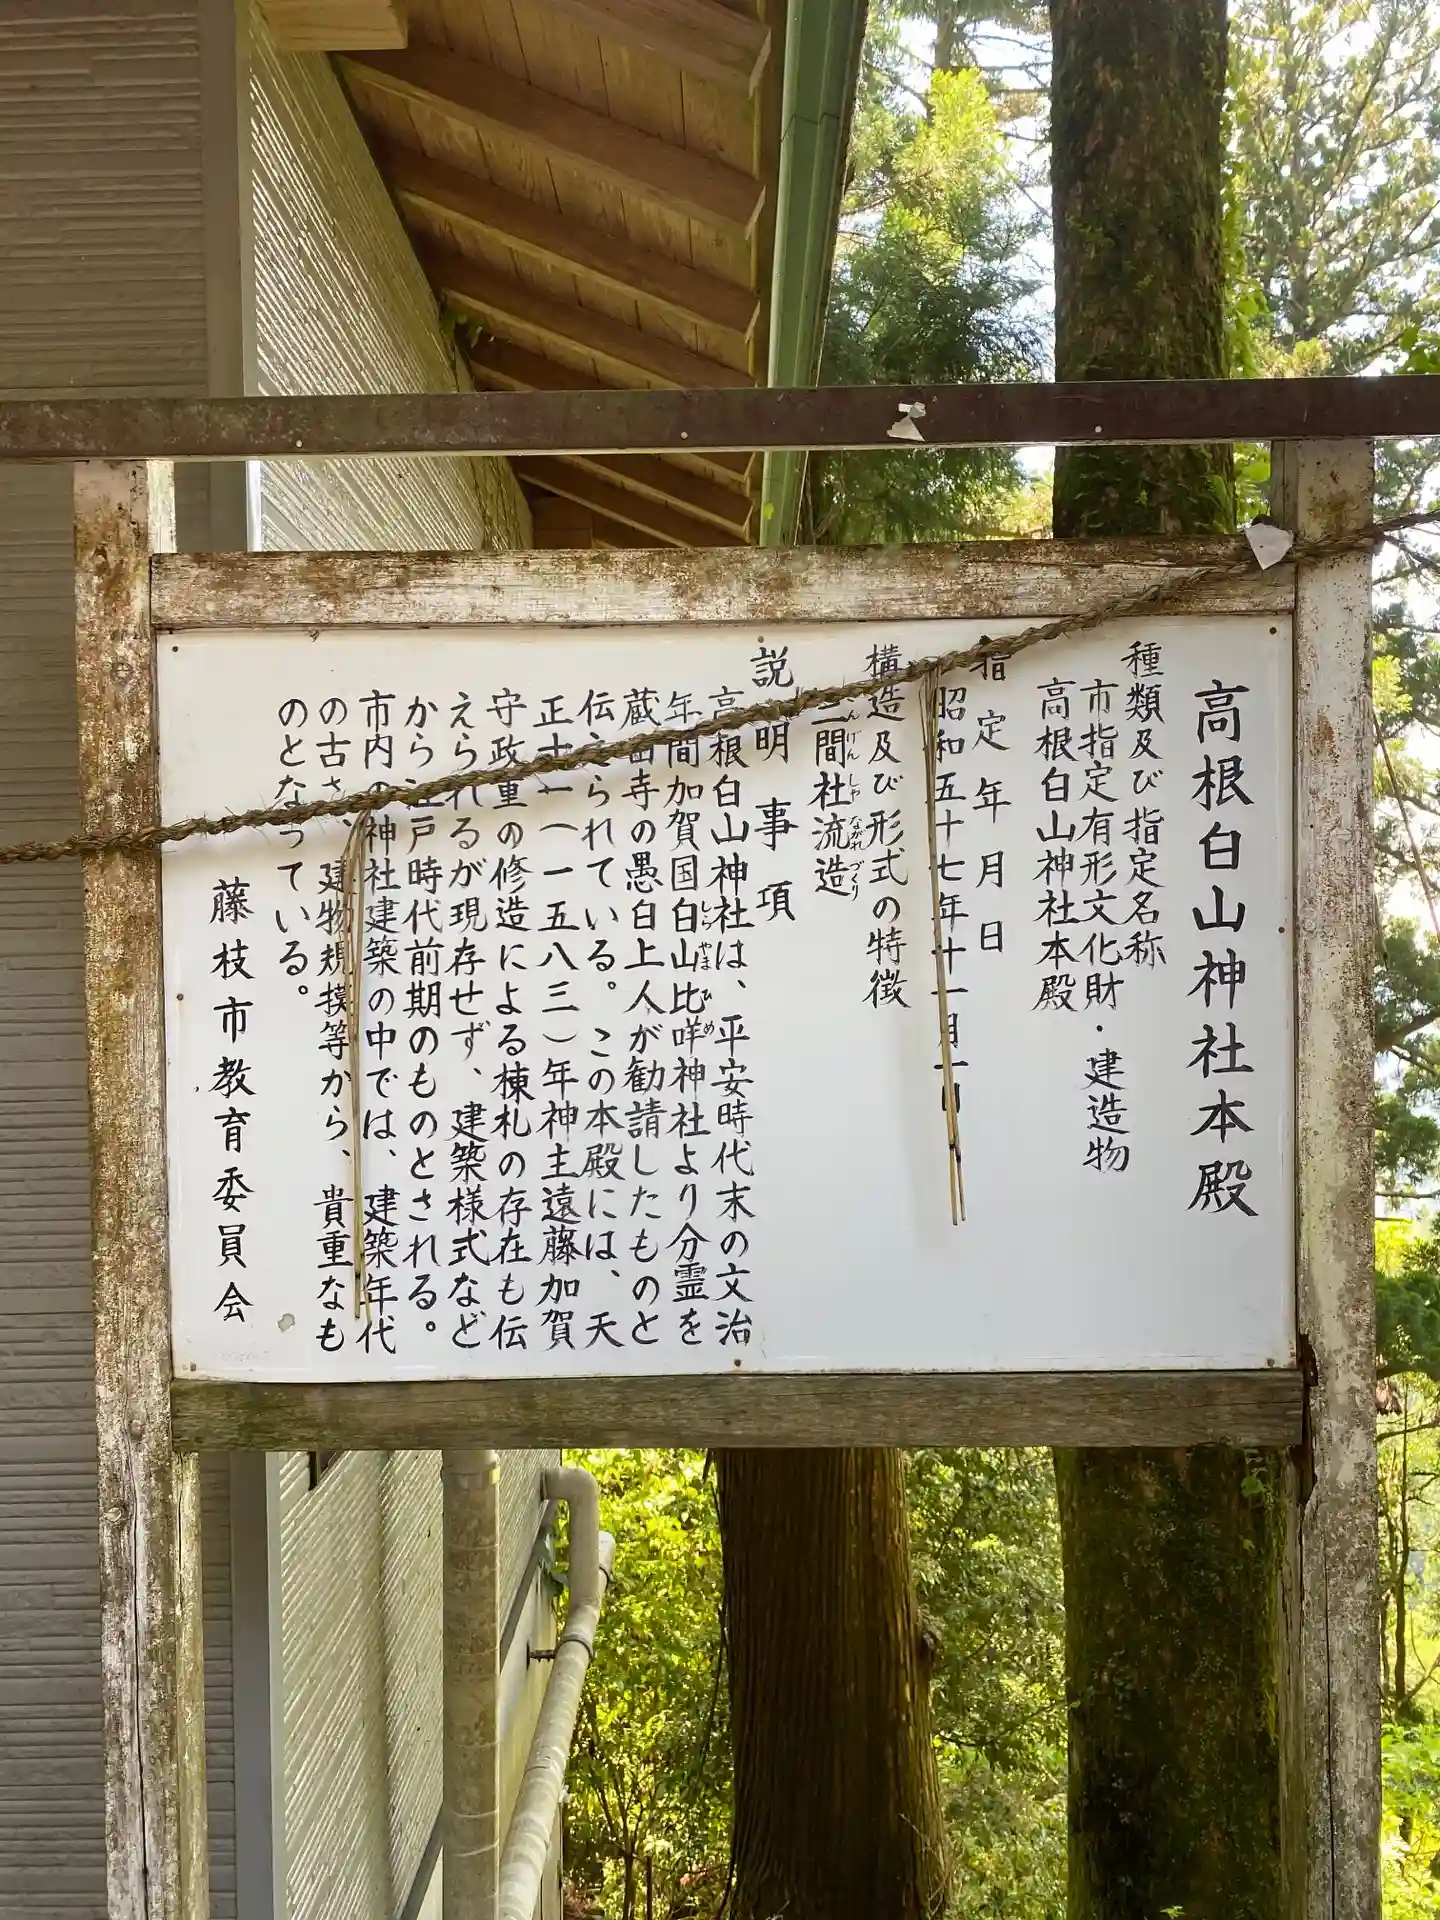 高根白山神社本殿
種類及び指定名称
市指定有形文化財・建造物
高根白山神社本殿
指定年月日
昭和五十七年十一月一日
構造及び形式の特徴
三間社流造
げん しゃ ながれ づくり
説明事項
高根白山神社は、平安時代末の文治
年間加賀国白山比咩神社より分霊を
しら やま ひ め
蔵田寺の愚白上人が勧請したものと
伝えられている。この本殿には、天
正十一（一五八三）年神主遠藤加賀
守政重の修造による棟札の存在も伝
えられるが現存せず、建築様式など
から江戸時代前期のものとされる。
市内の神社建築の中では、建築年代
の古さ、建物規模等から、貴重なも
のとなっている。
藤枝市教育委員会